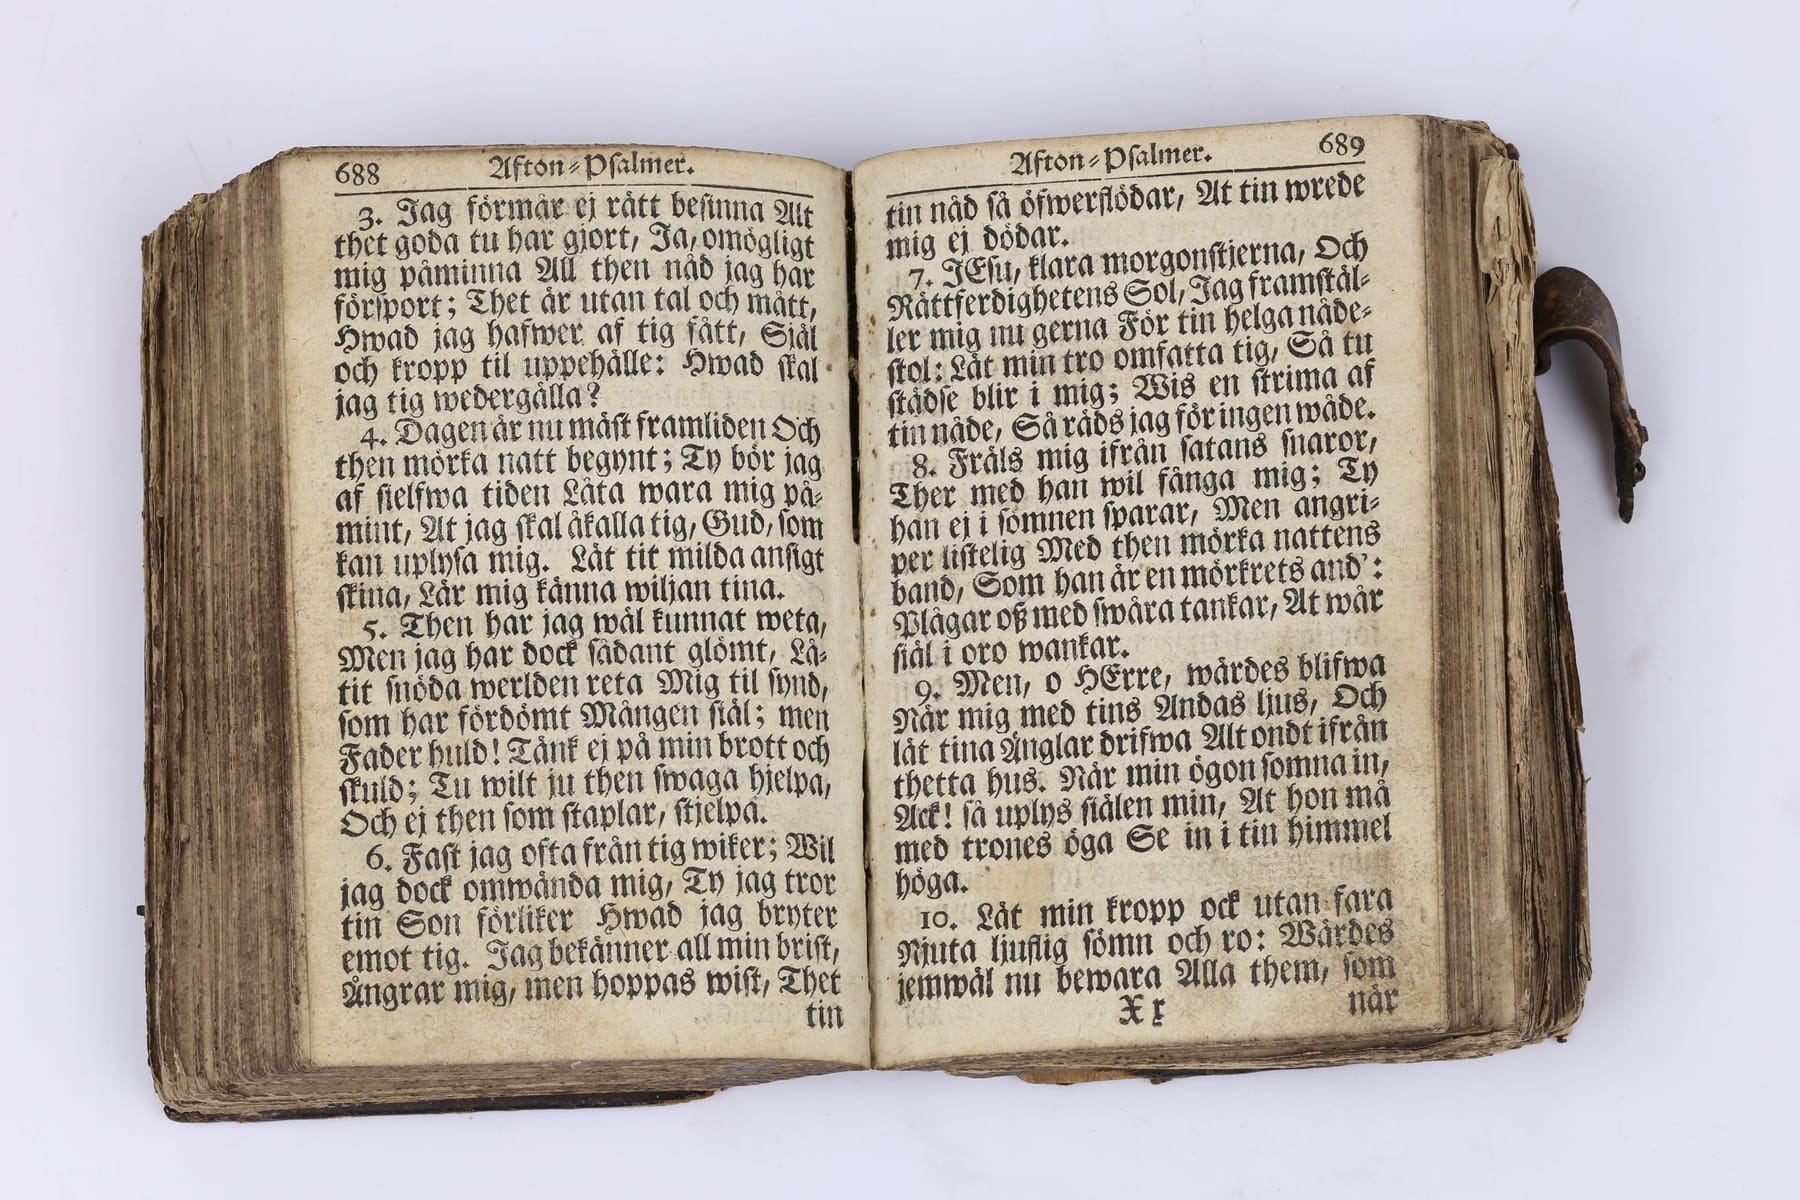 688 Afton-Psalmer.
3. Jag förmår ej rätt besinna Alt
thet goda tu har gjort, Ja, omögligt
mig påminna All then nåd jag har
försport; Thet är utan tal och mått,
Hwad jag hafwer af tig fått, Själ
och kropp til uppehälle: Hwad skal
jag tig wedergälla?
4. Dagen är nu mäst framliden Och
then mörka natt begynt; Ty bör jag
af sielfwa tiden Låta wara mig på-
mint, At jag skal åkalla tig, Gud, som
kan uplysa mig. Låt tit milda ansigt
skina, Lär mig känna wiljan tina.
5. Then har jag wäl kunnat weta,
Men jag har dock sådant glömt, Lå-
tit snöda werlden reta Mig til synd,
som har fördömt Mången siäl; men
Fader huld! Tänk ej på min brott och
skuld; Tu wilt ju then swaga hjelpa,
Och ej then som staplar, stjelpa.
6. Fast jag ofta från tig wiker; Wil
jag dock omwända mig, Ty jag tror
tin Son förliker Hwad jag bryter
emot tig. Jag bekänner all min brist,
Ångrar mig, men hoppas wist, Thet
tin
Afton-Psalmer. 689
tin nåd så öfwerflödar, At tin wrede
mig ej dödar.
7. JEsu, klara morgonstjerna, Och
Rättferdighetens Sol, Jag framstäl-
ler mig nu gerna För tin helga nåde-
stol: Låt min tro omfatta tig, Så tu
städse blir i mig; Wis en strima af
tin nåde, Så räds jag för ingen wåde.
8. Fräls mig ifrån satans snaror,
Ther med han wil fånga mig; Ty
han ej i sömnen sparar, Men angri-
per listelig Med then mörka nattens
band, Som han är en mörkrets and':
Plågar oß med swåra tankar, At wår
siäl i oro wankar.
9. Men, o HErre, wärdes blifwa
När mig med tins Andas ljus, Och
låt tina Änglar drifwa Alt ondt ifrån
thetta hus. När min ögon somna in,
Ack! så uplys siälen min, At hon må
med trones öga Se in i tin himmel
höga.
10. Låt min kropp ock utan fara
Njuta ljuflig sömn och ro: Wärdes
jemwäl nu bewara Alla them, som
X x när